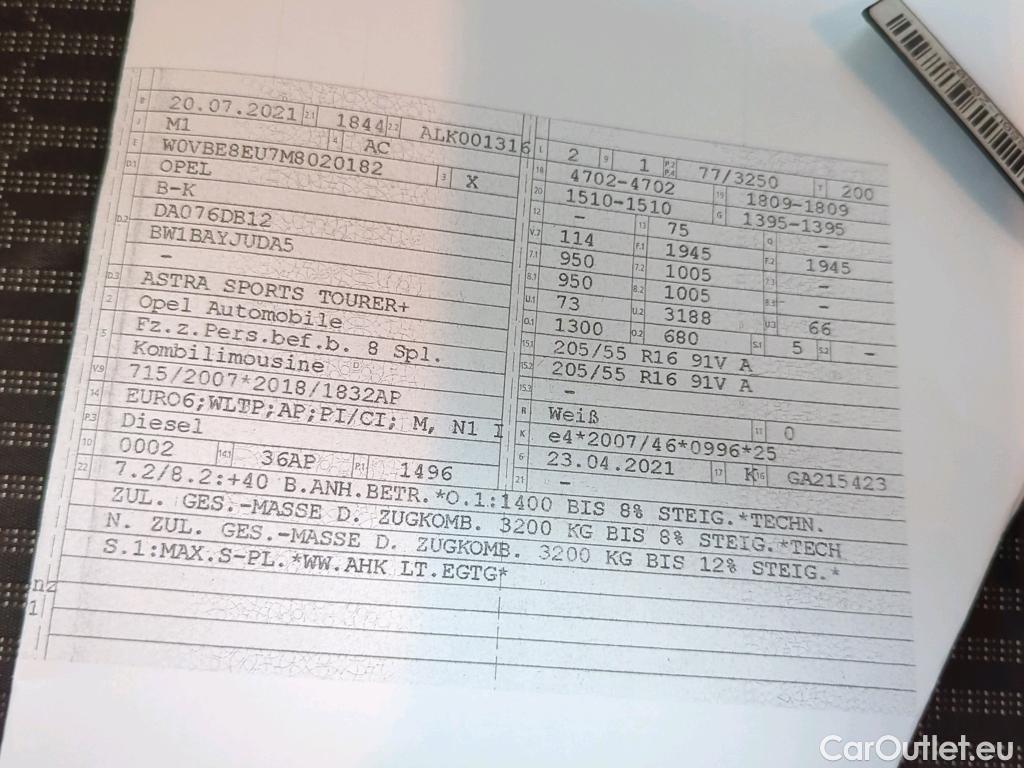 B 20.07.2021 2.1 1844 2.2 ALK001316
J M1 4 AC
E W0VBE8EU7M8020182 3 X
D.1 OPEL
B-K
D.2 DA076DB12
BW1BAYJUDA5
-
D.3 ASTRA SPORTS TOURER+
2 Opel Automobile
5 Fz.z.Pers.bef.b. 8 Spl.
Kombilimousine
V.9 715/2007*2018/1832AP
14 EURO6;WLTP;AP;PI/CI; M, N1 I
P.3 Diesel
10 0002 14.1 36AP P.1 1496
L 2 9 1 P.2 P.4 77/3250 T 200
18 4702-4702 19 1809-1809
20 1510-1510 G 1395-1395
12 - 13 75 Q -
V.7 114 F.1 1945 F.2 1945
7.1 950 7.2 1005 7.3 -
8.1 950 8.2 1005 8.3 -
U.1 73 U.2 3188 U.3 66
O.1 1300 O.2 680 S.1 5 S.2 -
15.1 205/55 R16 91V A
15.2 205/55 R16 91V A
15.3 -
R Weiß 11 0
K e4*2007/46*0996*25
6 23.04.2021 17 K 16 GA215423
21 -
22 7.2/8.2:+40 B.ANH.BETR.*O.1:1400 BIS 8% STEIG.*TECHN.
ZUL. GES.-MASSE D. ZUGKOMB. 3200 KG BIS 8% STEIG.*TECH
N. ZUL. GES.-MASSE D. ZUGKOMB. 3200 KG BIS 12% STEIG.*
S.1:MAX.S-PL.*WW.AHK LT.EGTG*
nz
1
CarOutlet.eu